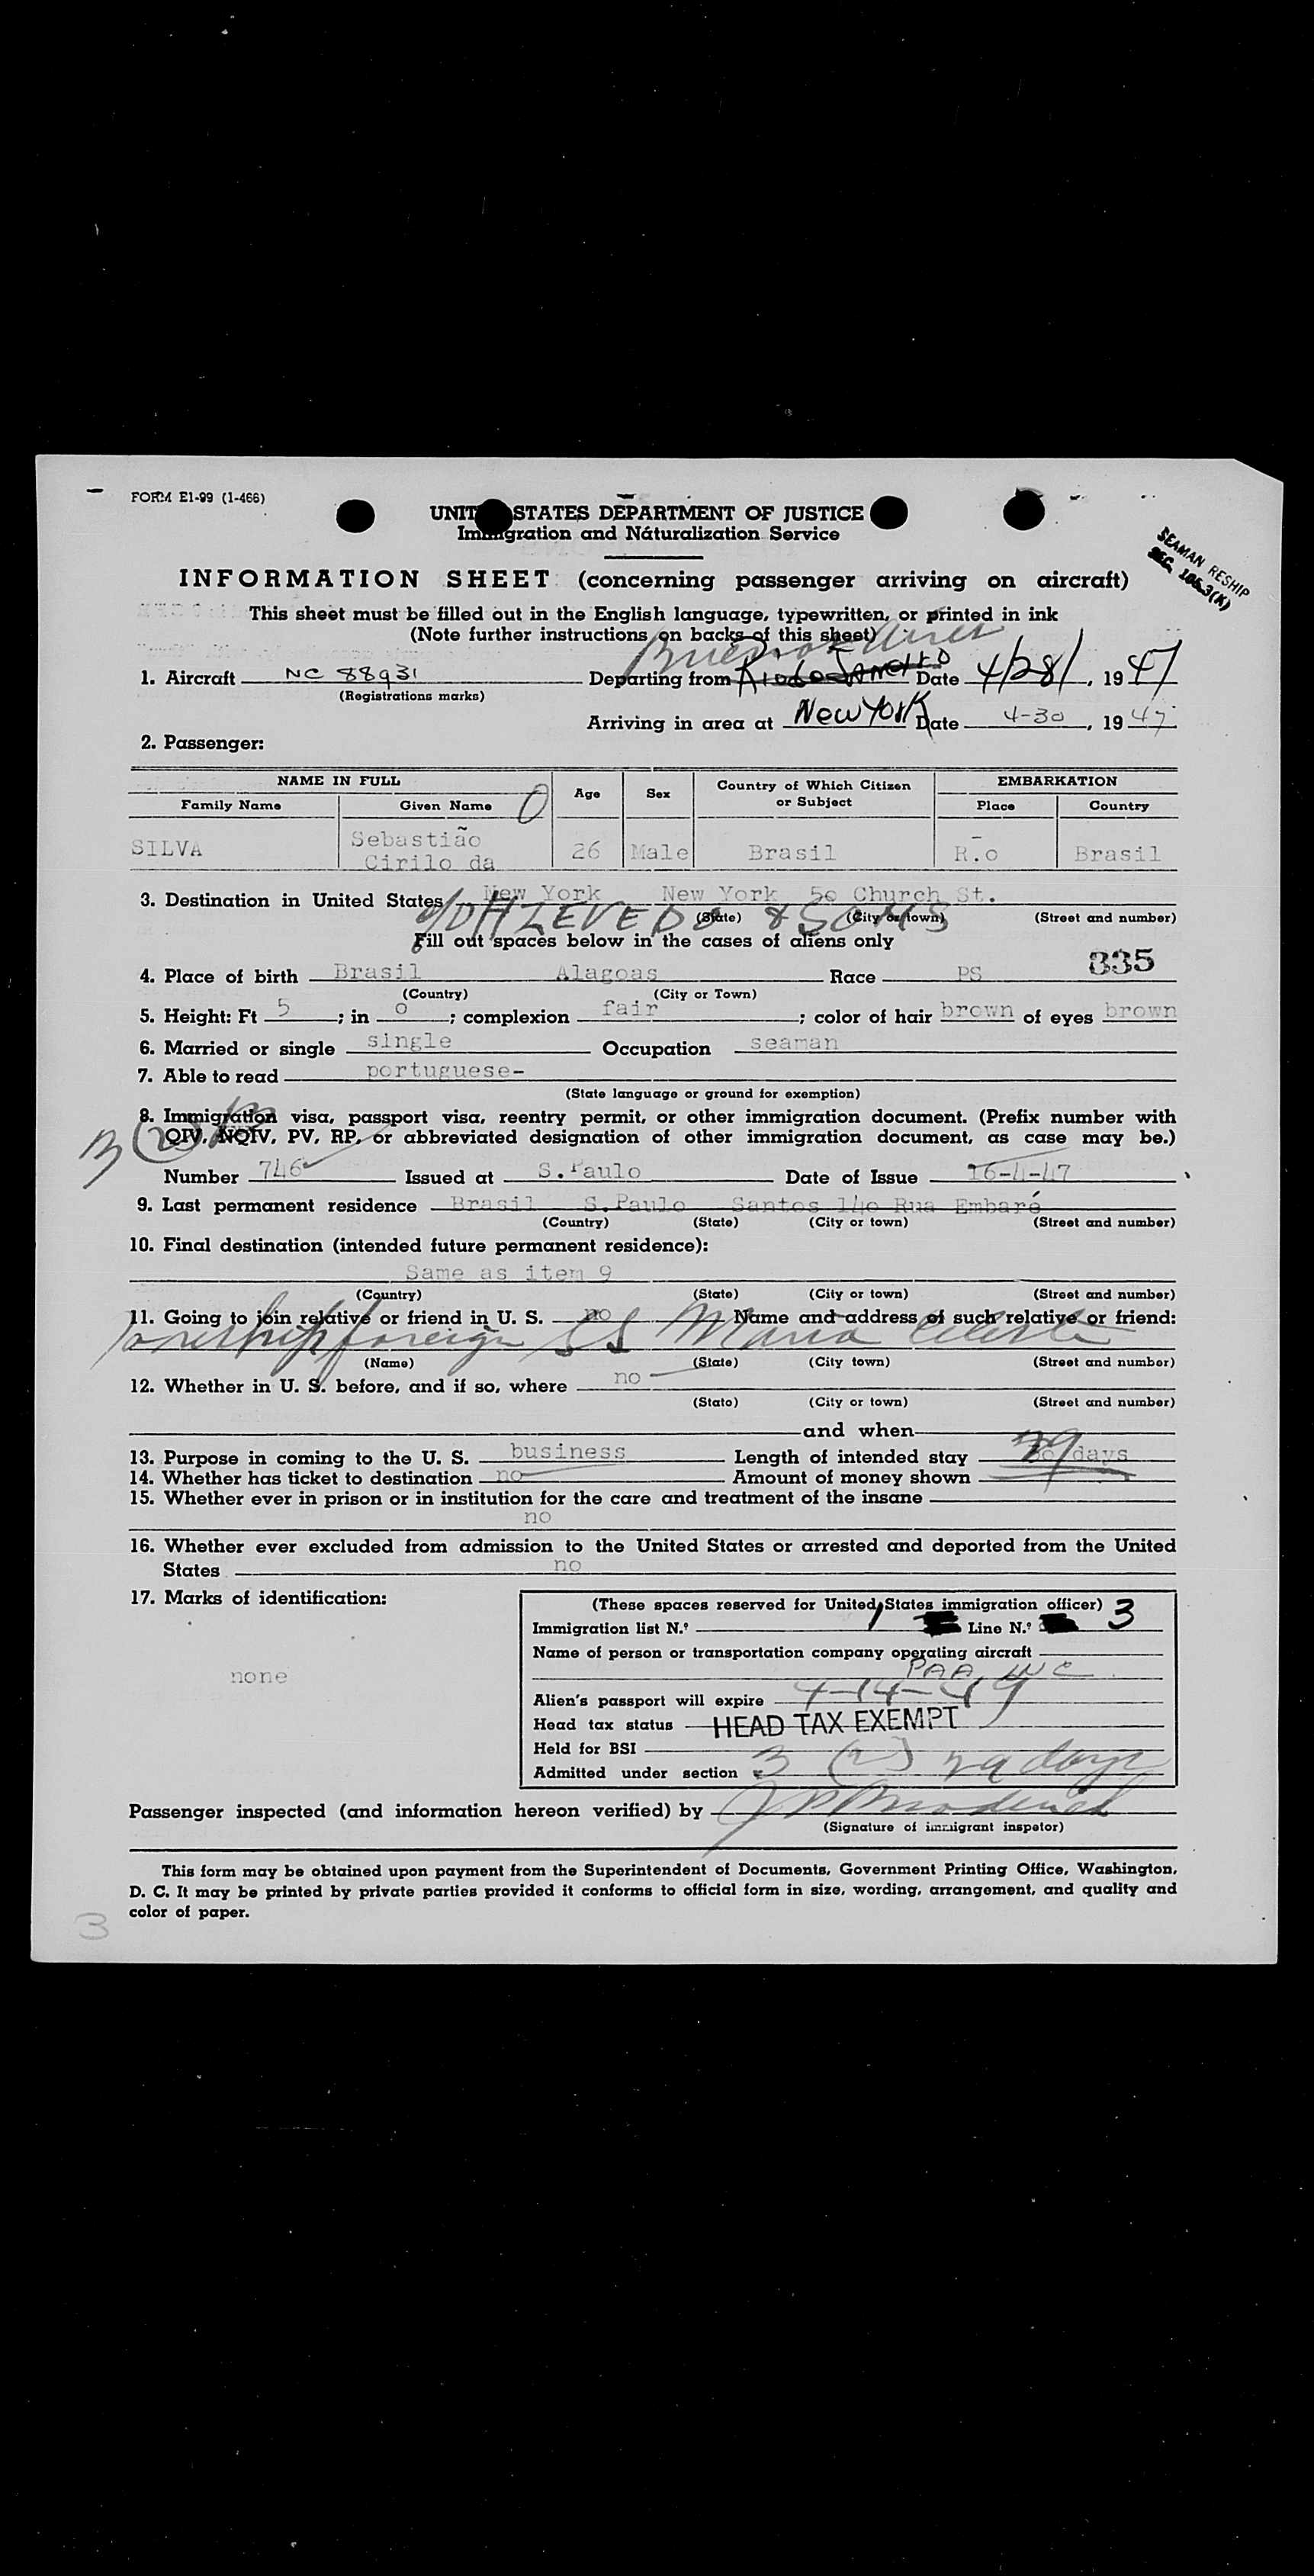 FORM E1-99 (1-466)
UNIT STATES DEPARTMENT OF JUSTICE
Immigration and Naturalization Service
SEAMAN RESHIP
SEC. 106.3(K)
INFORMATION SHEET (concerning passenger arriving on aircraft)
This sheet must be filled out in the English language, typewritten, or printed in ink
(Note further instructions on backs of this sheet)
Buenos Aires
1. Aircraft NC 88931 Departing from Rio de Janeiro Date 4/28/, 1947
(Registrations marks)
Arriving in area at New York Date 4-30, 1947
2. Passenger:
NAME IN FULL Age Sex Country of Which Citizen or Subject EMBARKATION
Family Name Given Name Place Country
SILVA Sebastião Cirilo da 26 Male Brasil R.o Brasil
3. Destination in United States New York New York 50 Church St.
(State) (City or town) (Street and number)
& SONS
Fill out spaces below in the cases of aliens only
335
4. Place of birth Brasil Alagoas Race PS
(Country) (City or Town)
5. Height: Ft 5; in 0; complexion fair; color of hair brown of eyes brown
6. Married or single single Occupation seaman
7. Able to read portuguese-
(State language or ground for exemption)
8. Immigration visa, passport visa, reentry permit, or other immigration document. (Prefix number with
3(2) QIV, NQIV, PV, RP, or abbreviated designation of other immigration document, as case may be.)
Number 746 Issued at S.Paulo Date of Issue 16-4-47
9. Last permanent residence Brasil S.Paulo Santos 140 Rua Embaré
(Country) (State) (City or town) (Street and number)
10. Final destination (intended future permanent residence):
Same as item 9
(Country) (State) (City or town) (Street and number)
11. Going to join relative or friend in U. S. no Name and address of such relative or friend:
to reship foreign SS Maria Celeste
(Name) (State) (City town) (Street and number)
12. Whether in U. S. before, and if so, where no
(Stato) (City or town) (Street and number)
and when
13. Purpose in coming to the U. S. business Length of intended stay 29 days
14. Whether has ticket to destination no Amount of money shown
15. Whether ever in prison or in institution for the care and treatment of the insane
no
16. Whether ever excluded from admission to the United States or arrested and deported from the United
States no
17. Marks of identification:
none
(These spaces reserved for United States immigration officer)
Immigration list N.º 1 Line N.º 3
Name of person or transportation company operating aircraft
PAA, INC.
Alien's passport will expire 4-14-49
Head tax status HEAD TAX EXEMPT
Held for BSI
Admitted under section 3 (2) 29 days
Passenger inspected (and information hereon verified) by
(Signature of immigrant inspetor)
This form may be obtained upon payment from the Superintendent of Documents, Government Printing Office, Washington,
D. C. It may be printed by private parties provided it conforms to official form in size, wording, arrangement, and quality and
color of paper.
3